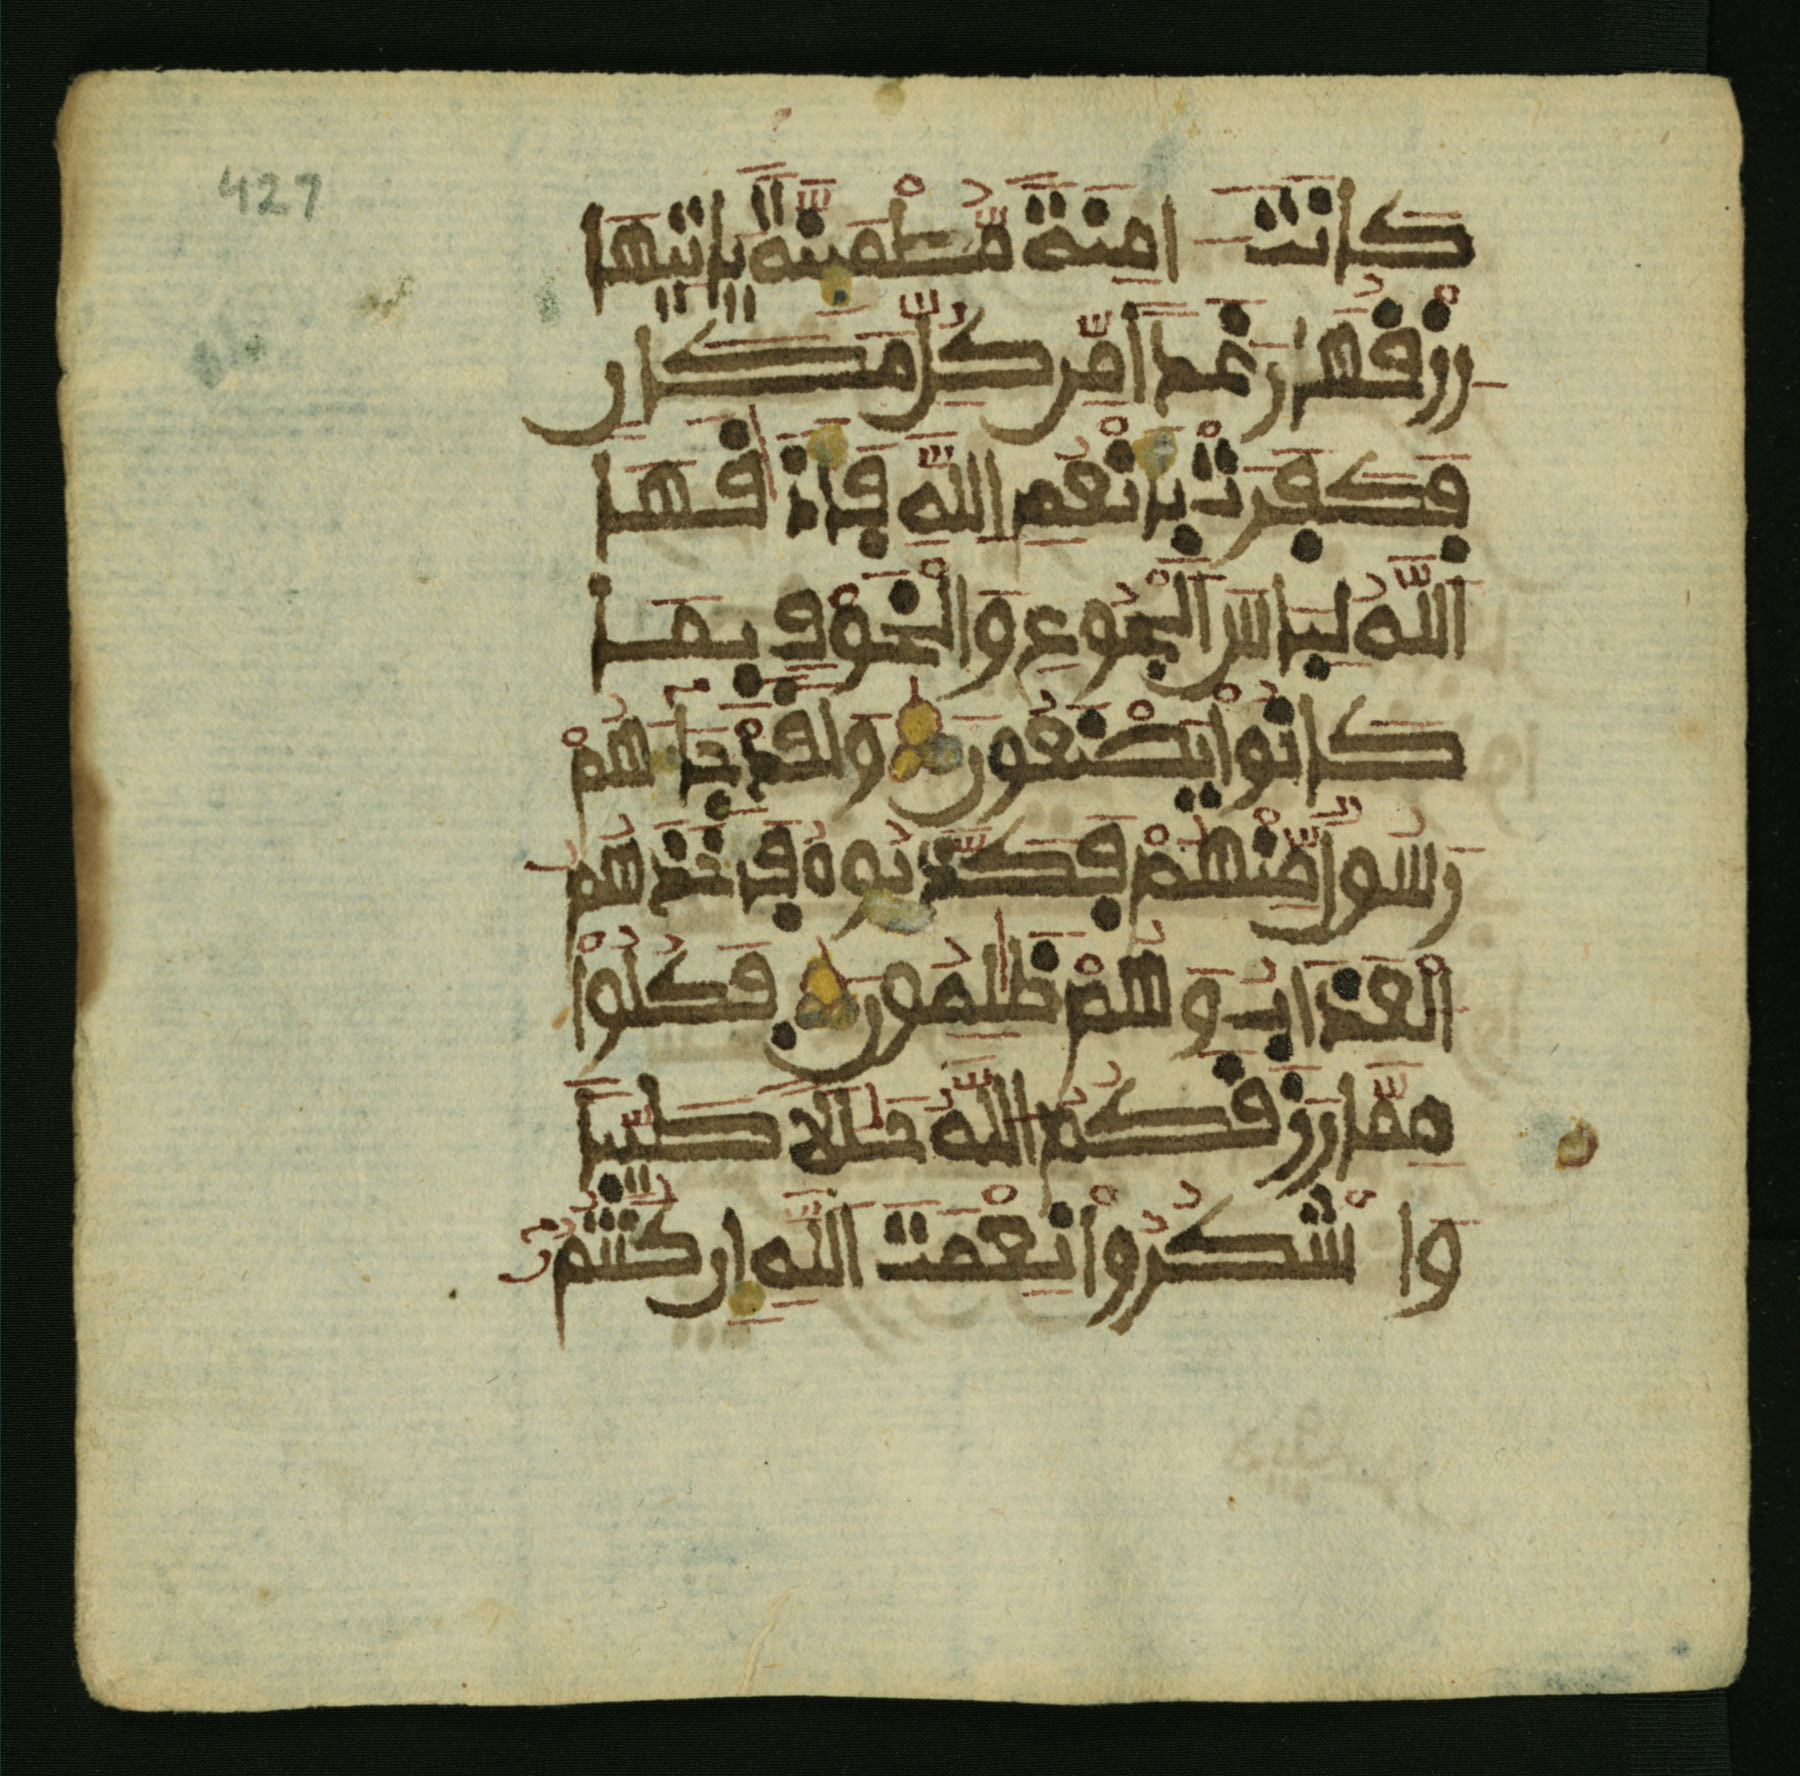 427
كَانَتْ ءَامِنَةً مُّطْمَئِنَّةً يَاتِيهَا
رِزْقُهَا رَغَدًا مِّن كُلِّ مَكَانٍ
فَكَفَرَتْ بِأَنْعُمِ اللَّهِ فَأَذَٰقَهَا
اللَّهُ لِبَاسَ الْجُوعِ وَالْخَوْفِ بِمَا
كَانُوا يَصْنَعُونَ وَلَقَدْ جَآءَهُمْ
رَسُولٌ مِّنْهُمْ فَكَذَّبُوهُ فَأَخَذَهُمُ
الْعَذَابُ وَهُمْ ظَٰلِمُونَ فَكُلُوا
مِمَّا رَزَقَكُمُ اللَّهُ حَلَٰلًا طَيِّبًا
وَاشْكُرُوا نِعْمَتَ اللَّهِ إِن كُنتُمُ